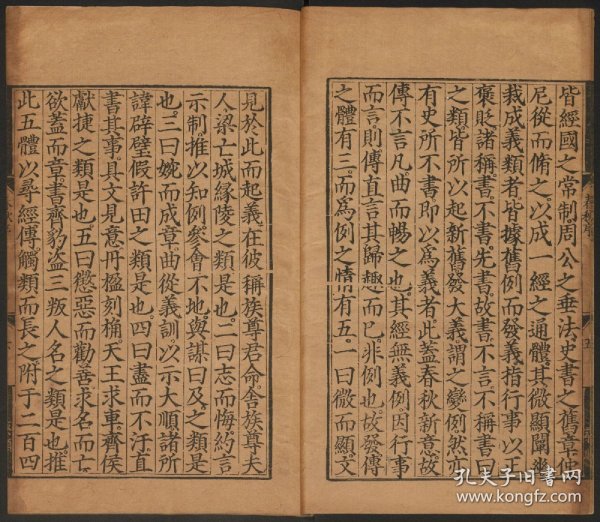 皆經國之常制周公之垂法史書之舊章仲
尼從而脩之以成一經之通體其微顯闡幽
裁成義類者皆據舊例而發義指行事以正
褒貶諸稱書不書先書故書不言不稱書曰
之類皆所以起新舊發大義謂之變例然亦
有史所不書即以爲義者此蓋春秋新意故
傳不言凡曲而暢之也其經無義例因行事
而言則傳直言其歸趣而已非例也故發傳
之體有三而爲例之情有五一曰微而顯文
見於此而起義在彼稱族尊君命舍族尊夫
人梁亡城緣陵之類是也二曰志而晦約言
示制推以知例參會不地與謀曰及之類是
也三曰婉而成章曲從義訓以示大順諸所
諱辟璧假許田之類是也四曰盡而不汙直
書其事具文見意丹楹刻桷天王求車齊侯
獻捷之類是也五曰懲惡而勸善求名而亡
欲蓋而章書齊豹盜三叛人名之類是也推
此五體以尋經傳觸類而長之附于二百四
孔夫子旧书网
www.kongfz.com